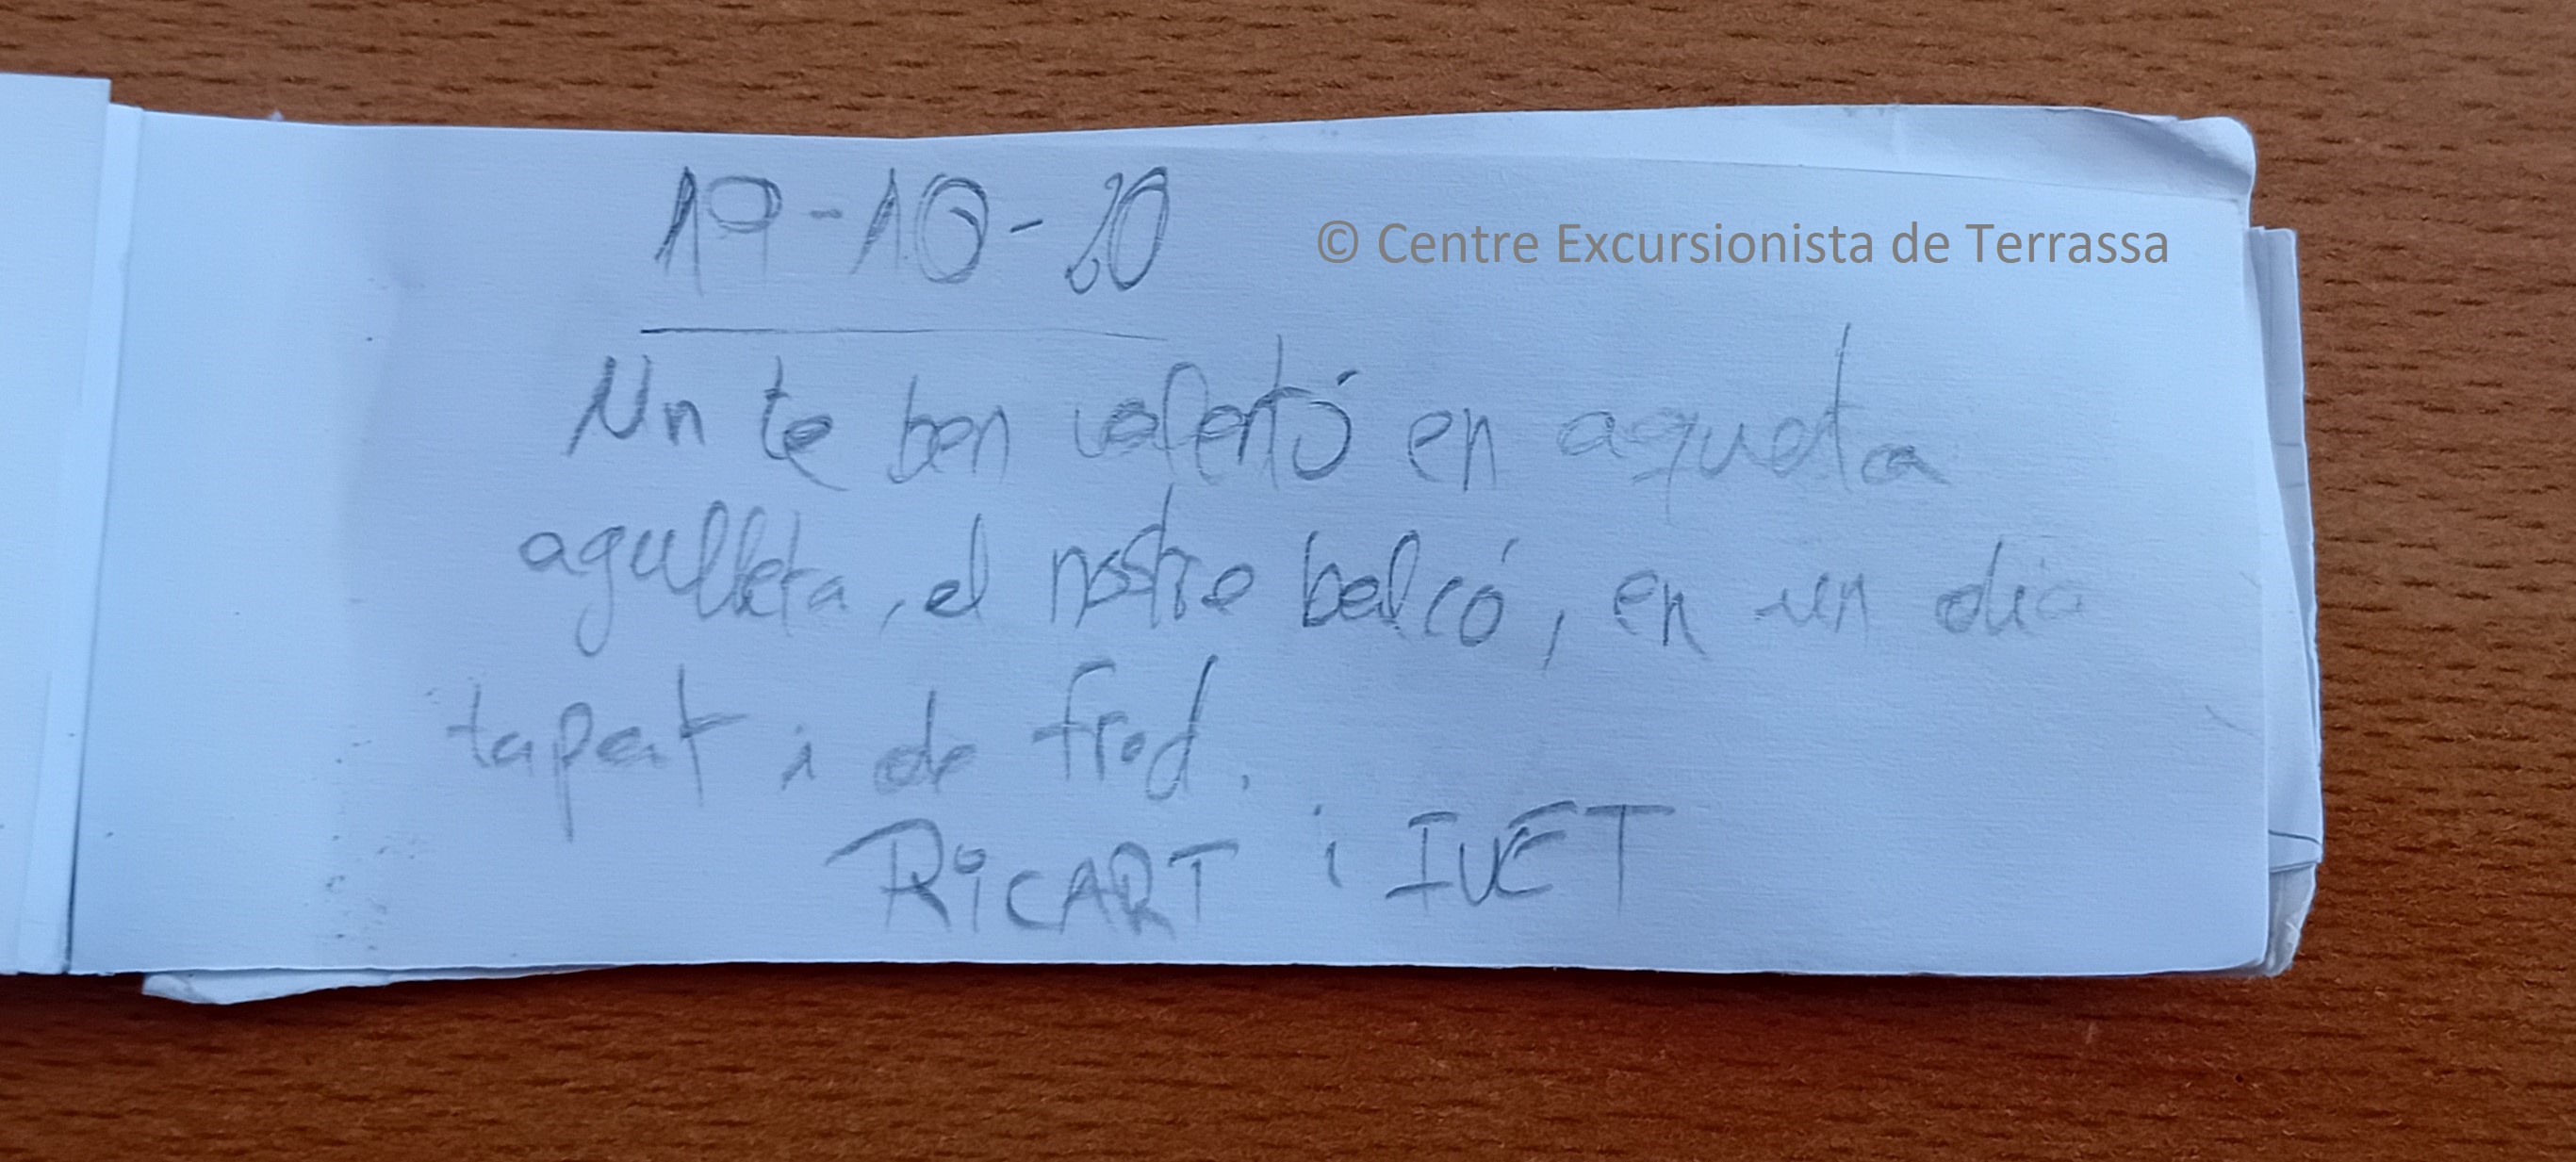 19-10-20
© Centre Excursionista de Terrassa
Un te ben calentó en aqueta
agulleta, el nostre balcó, en un dia
tapat i de fred.
RICART i IVET